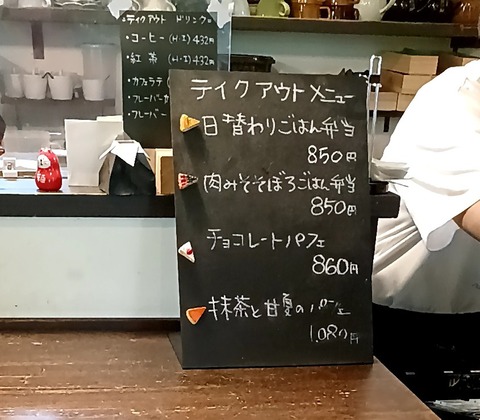 テイクアウト ドリンク
・コーヒー (H・I) 432円
・紅茶 (H・I) 432円
・カフェラテ
・フレーバー
・フレーバー
テイクアウトメニュー
日替わりごはん弁当
850円
肉みそそぼろごはん弁当
850円
チョコレートパフェ
860円
抹茶と甘夏のパフェ
1,080円